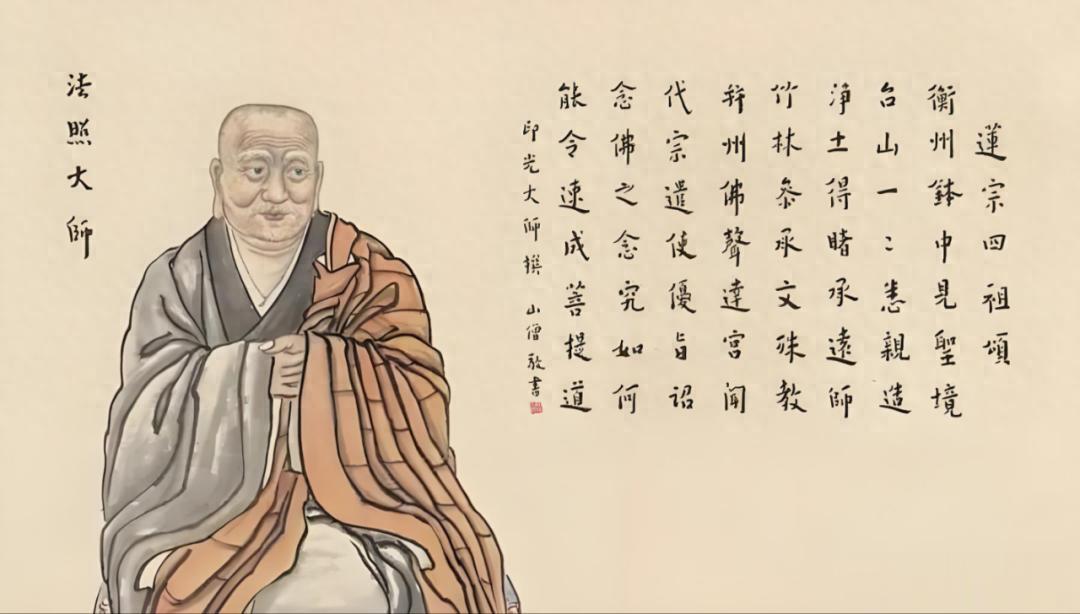 蓮宗四祖頌
衡州鉢中見聖境
台山一〻悉親造
淨土得睹承遠師
竹林叅承文殊教
并州佛聲達宮聞
代宗遣使優旨詔
念佛之念究如何
能令速成菩提道
印光大師撰 山僧敬書
法照大師